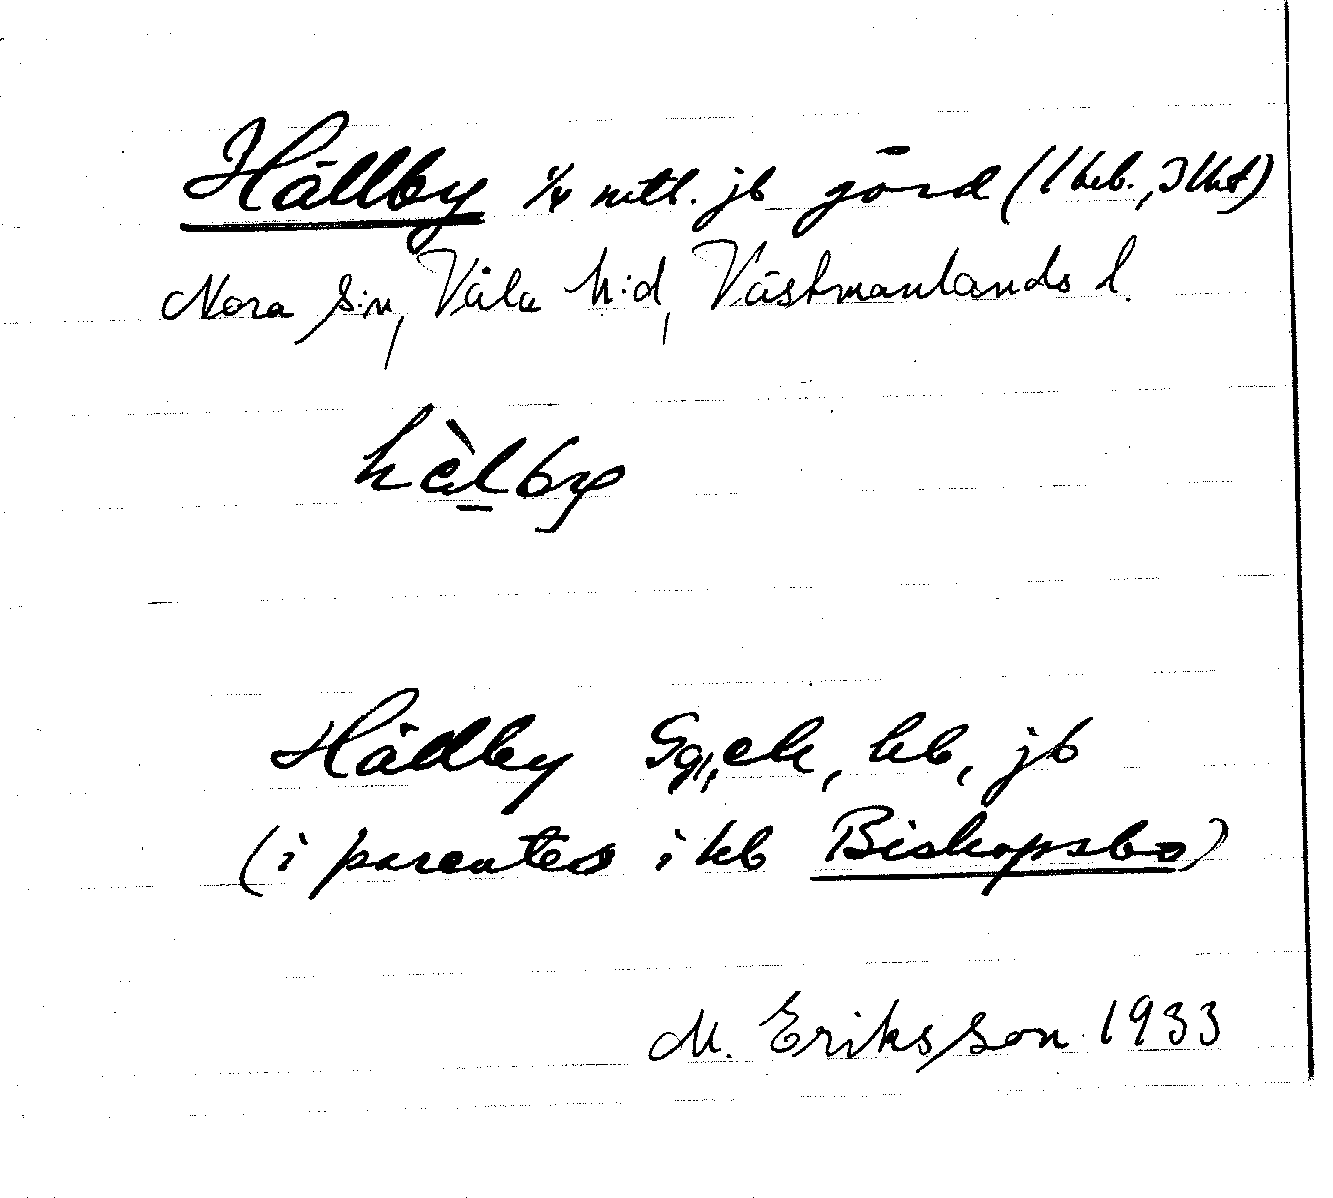 Hällby 1/4 mtl. jb jord (1 heb., 3 lht)
Nora s:n, Våla h:d, Västmanlands l.
hὲlby
Hällby Gg, ek, kb, jb
(i parentes i kb Biskopsbo)
M. Eriksson 1933